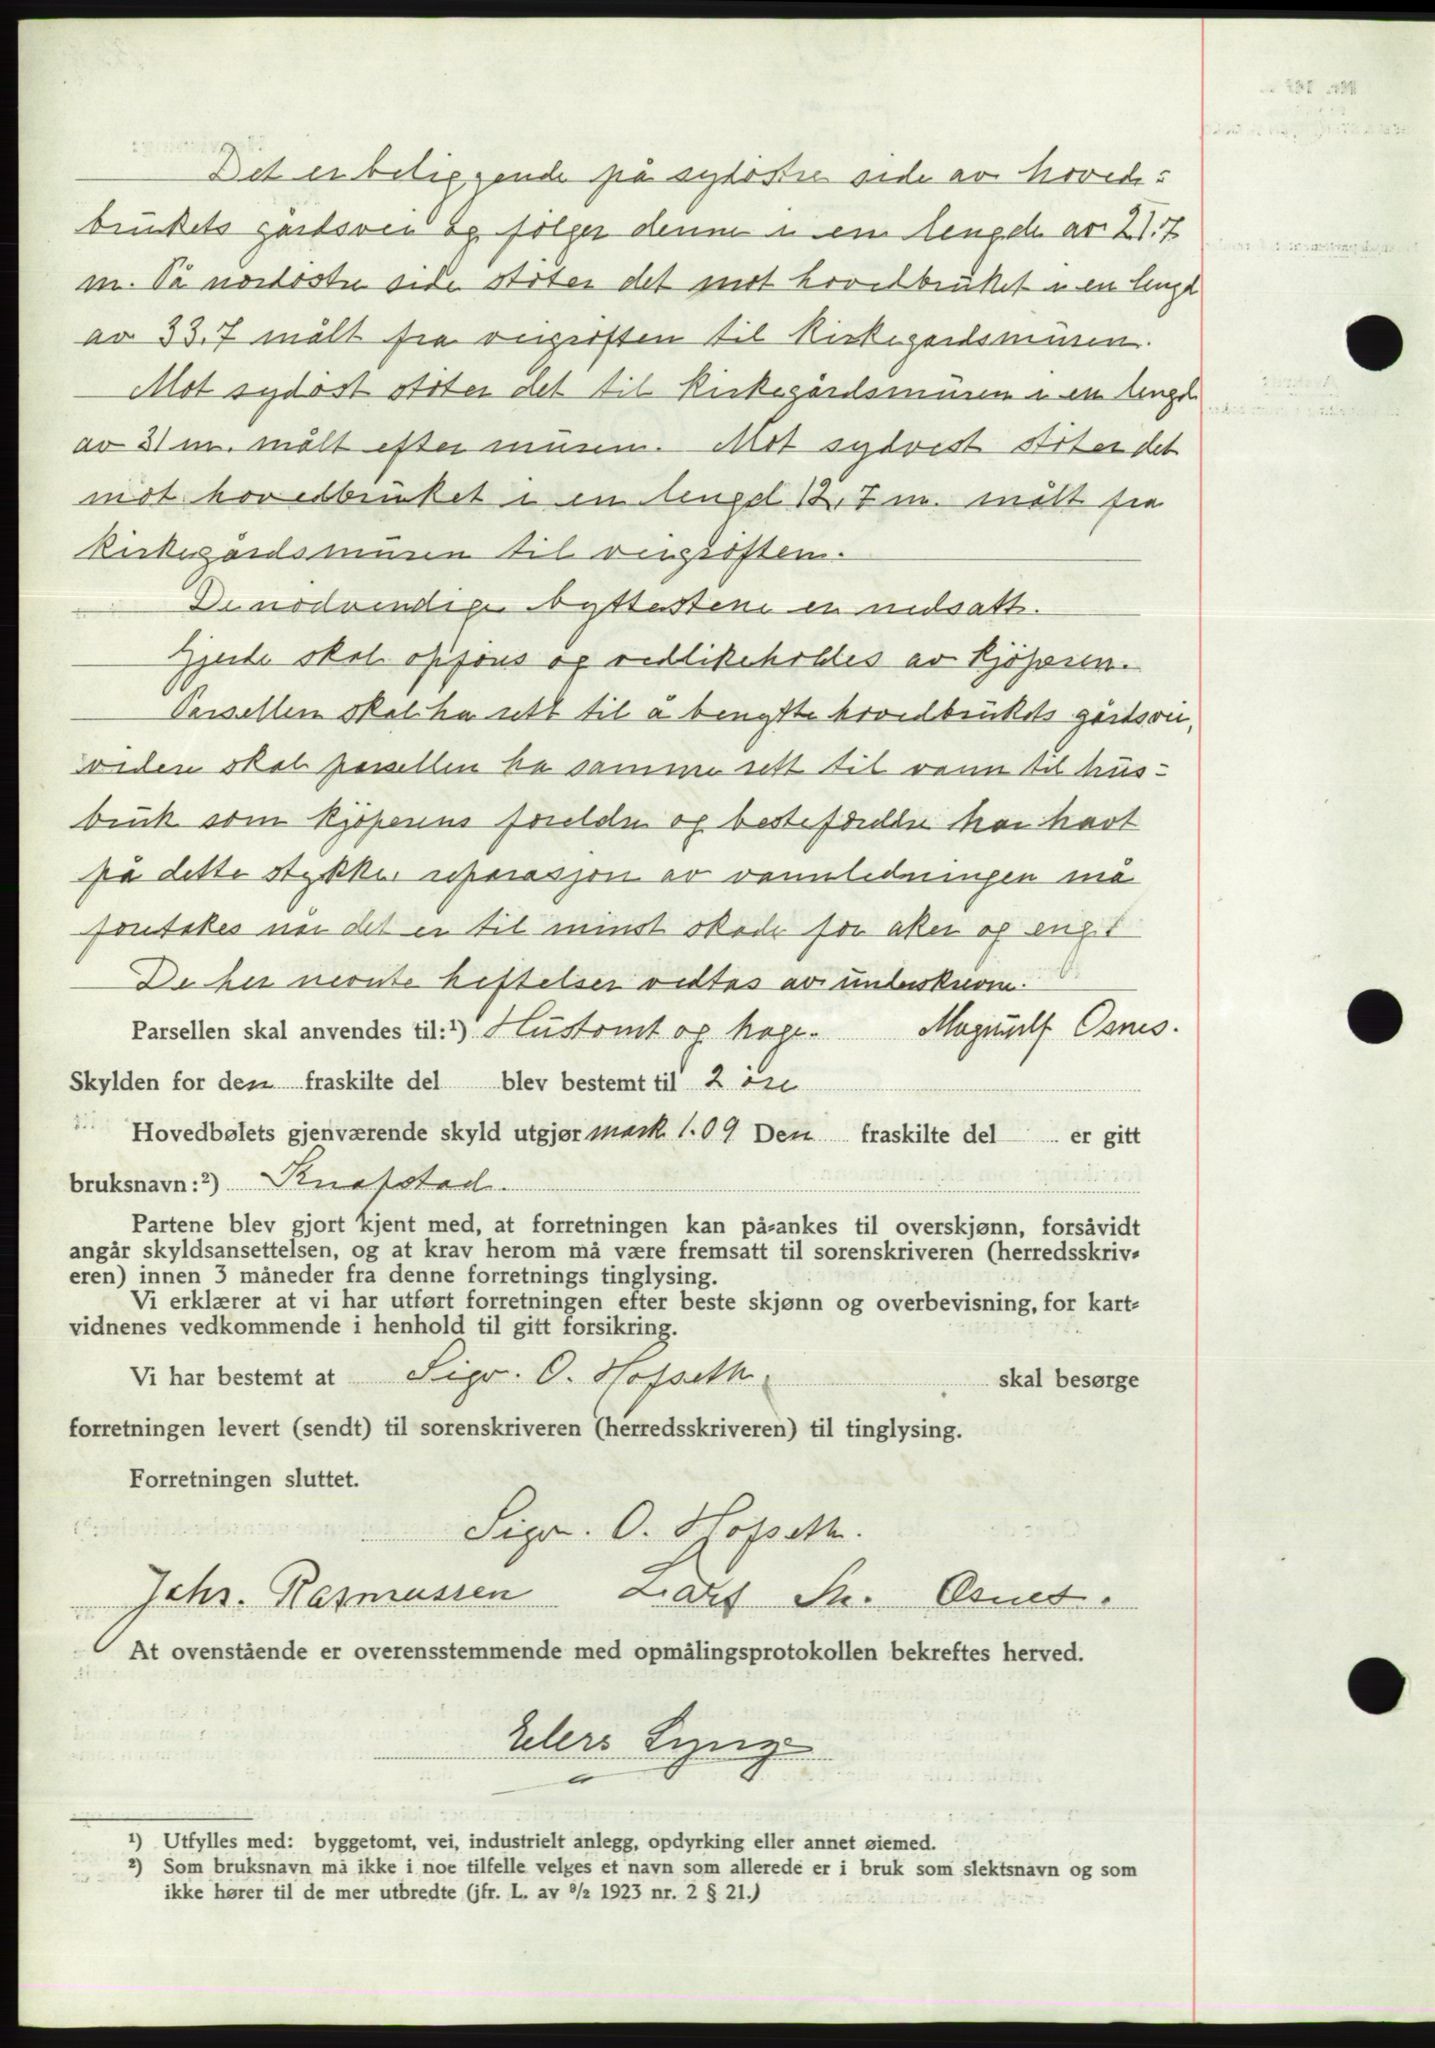 Det er beliggende på sydöstre side av hoved=
brukets gårdsvei og følger denne i en lengde av 21.7
m. På nordöstre side stöter det mot hovedbruket i en lengd
av 33.7 målt fra veigröften til kirkegardsmuren.
Mot sydöst stöter det til kirkegårdsmuren i en lengd
av 31 m. målt efter muren. Mot sydvest stöter det
mot hovedbruket i en lengd 12,7 m. målt fra
kirkegårdsmuren til veigröften.
De nödvendige byttestene er nedsatt.
Gjerde skal opføres og vedlikeholdes av kjöperen.
Parsellen skal ha rett til å benytte hovedbrukets gårdsvei,
videre skal parsellen ha samme rett til vann til hus=
bruk som kjöperens foreldre og besteforeldre har havt
på dette stykke, reparasjon av vannledningen må
foretakes når det er til minst skade for aker og eng.
De her nevnte heftelser vedtas av underskrevne.
Parsellen skal anvendes til:¹) Hustomt og hage. Magnulf Osnes.
Skylden for den fraskilte del blev bestemt til 2 öre
Hovedbølets gjenværende skyld utgjør mark 1.09 Den fraskilte del er gitt
bruksnavn:²) Knapstad.
Partene blev gjort kjent med, at forretningen kan på-ankes til overskjønn, forsåvidt
angår skyldsansettelsen, og at krav herom må være fremsatt til sorenskriveren (herredsskriv-
eren) innen 3 måneder fra denne forretnings tinglysing.
Vi erklærer at vi har utført forretningen efter beste skjønn og overbevisning, for kart-
vidnenes vedkommende i henhold til gitt forsikring.
Vi har bestemt at Sigv. O. Hofseth skal besørge
forretningen levert (sendt) til sorenskriveren (herredsskriveren) til tinglysing.
Forretningen sluttet.
Sigv. O. Hofseth.
Johs. Rasmussen Lars Osnes.
At ovenstående er overensstemmende med opmålingsprotokollen bekreftes herved.
Eilers Lyng
¹) Utfylles med: byggetomt, vei, industrielt anlegg, opdyrking eller annet øiemed.
²) Som bruksnavn må ikke i noe tilfelle velges et navn som allerede er i bruk som slektsnavn og som
ikke hører til de mer utbredte (jfr. L. av ⁹/₂ 1923 nr. 2 § 21.)